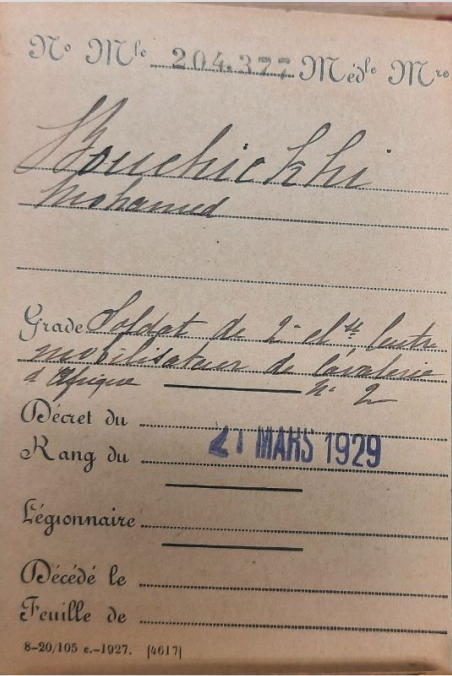 Nº Mle 204.377 Médle Mre
Bouchickhi
Mohamed
Grade Soldat de 2e cl. au Centre
mobilisateur de Cavalerie
d'Afrique nº 2
Décret du
Rang du 21 MARS 1929
Légionnaire
Décédé le
Feuille de
8-20/105 e.-1927. [4617]